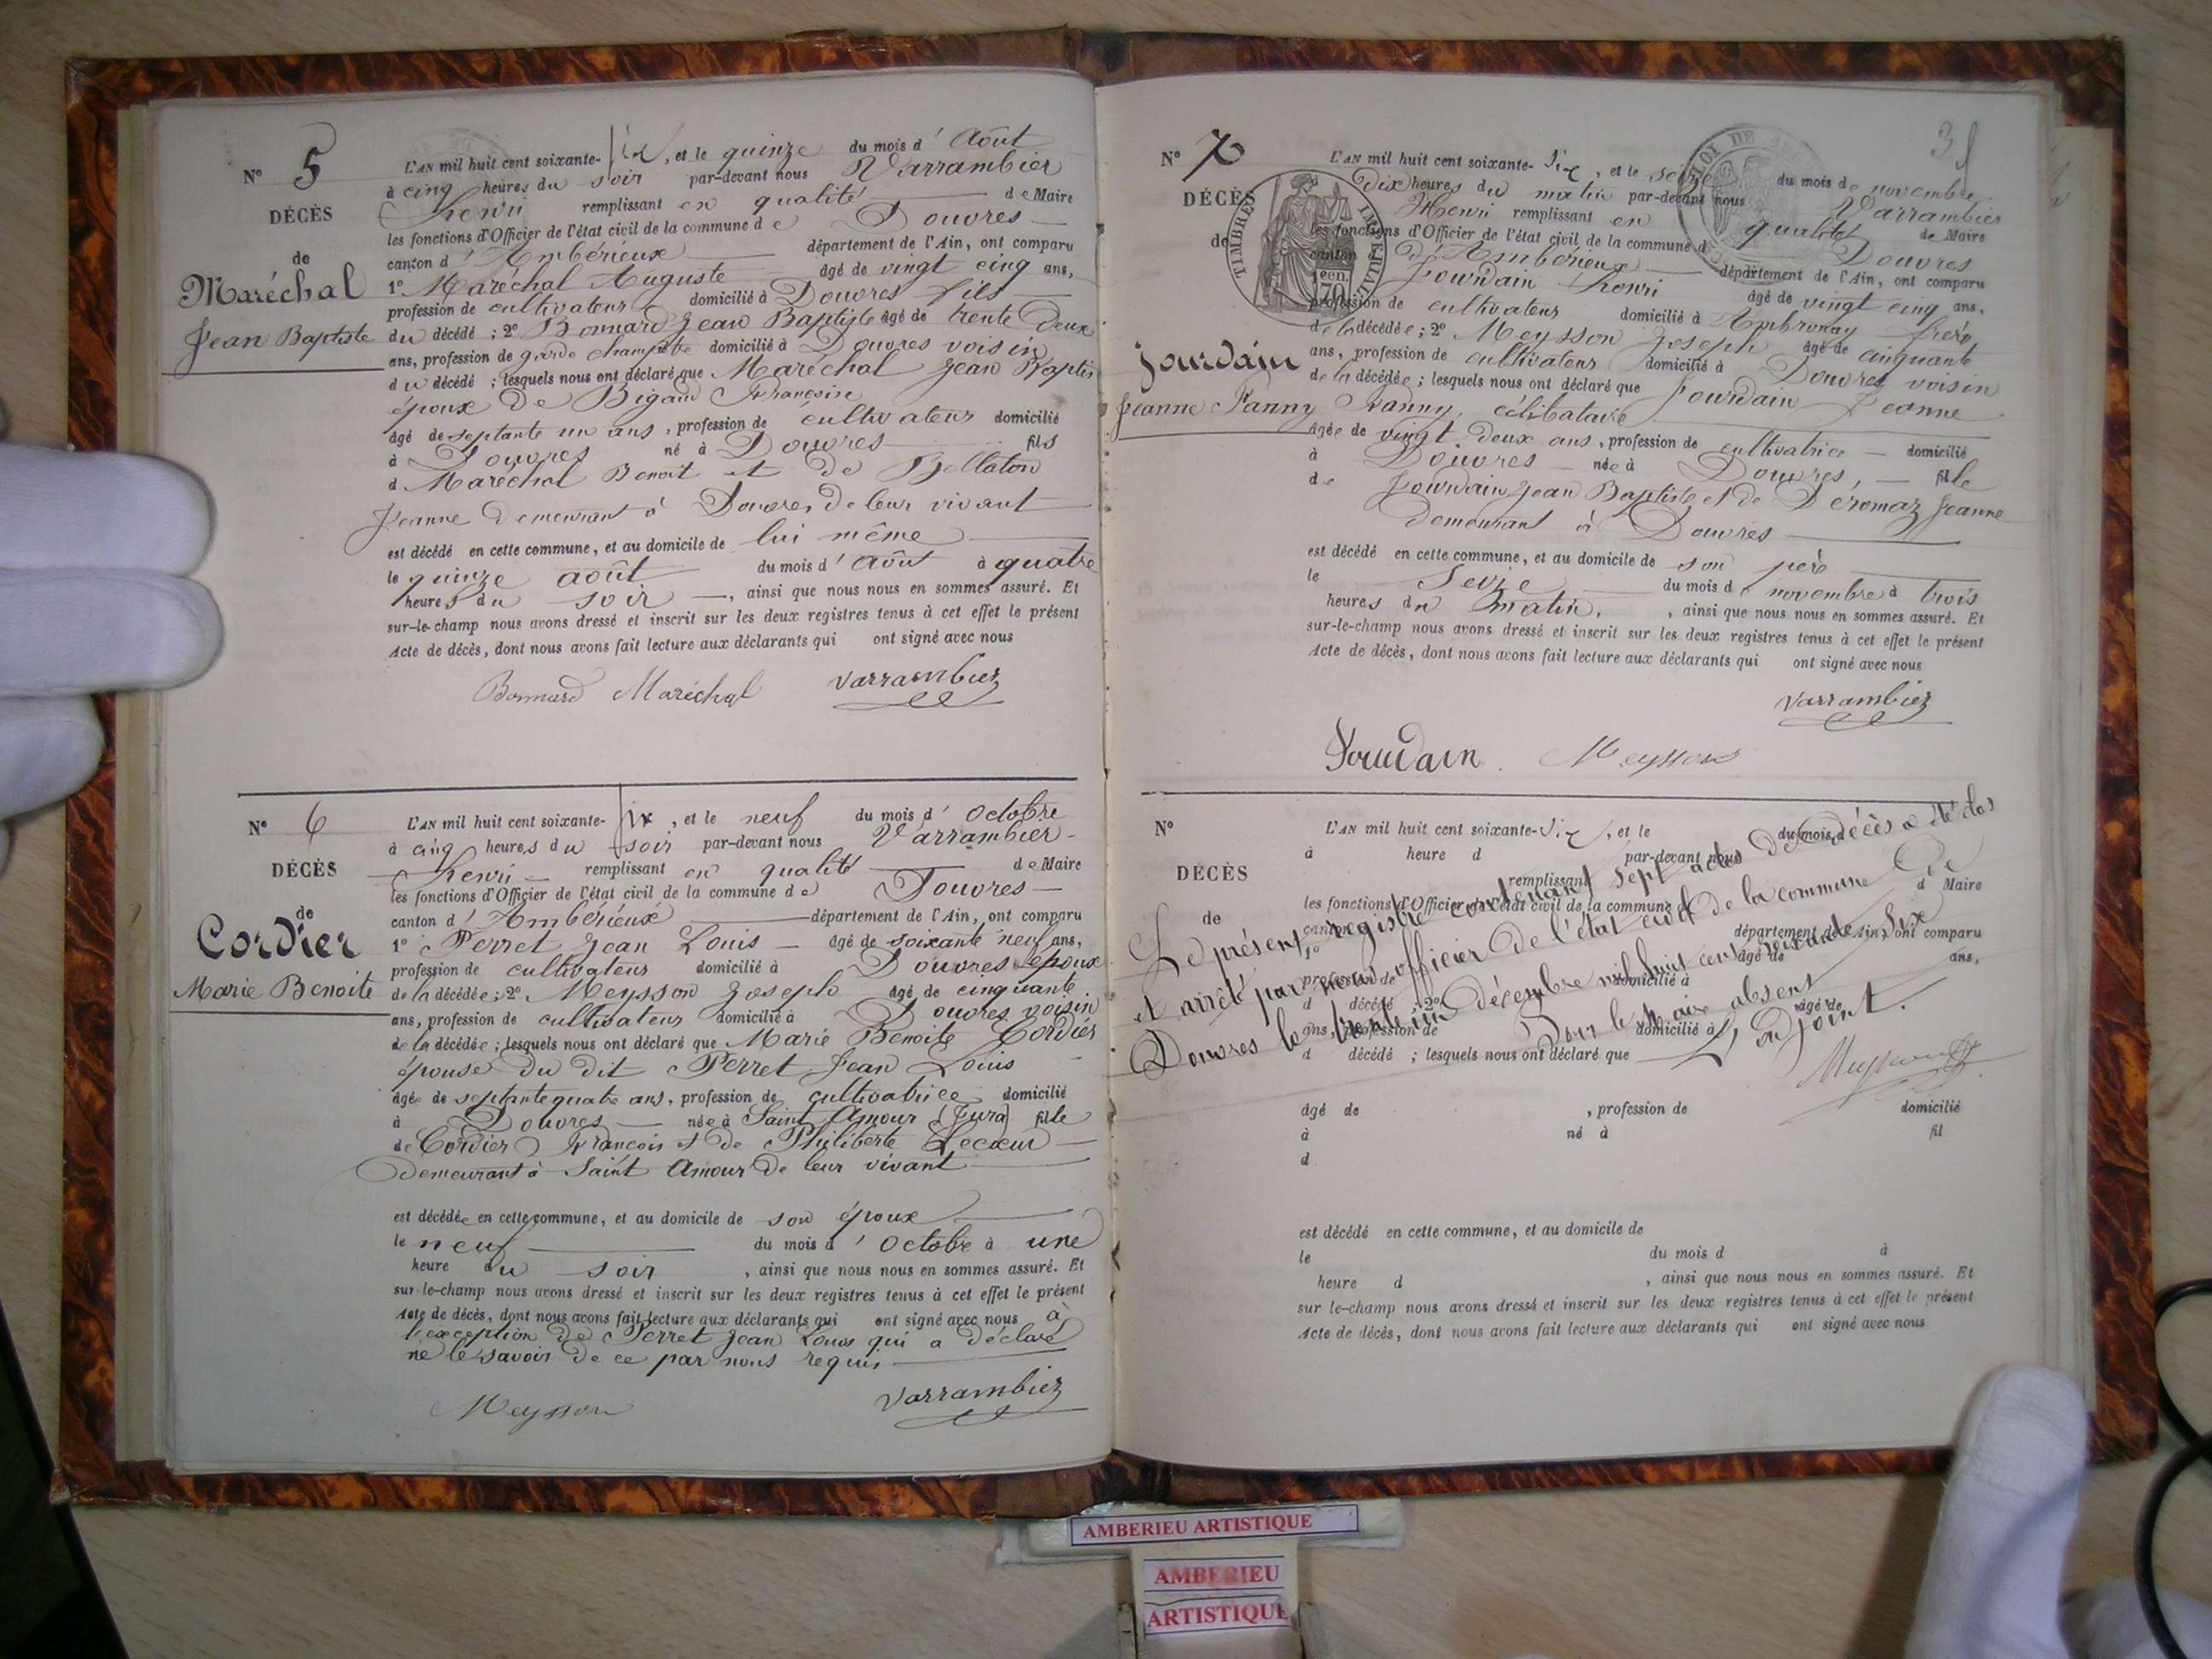 N° 5
DÉCÈS
de
Maréchal
Jean Baptiste
L'AN mil huit cent soixante-six, et le quinze du mois d'Août
à cinq heures du soir par-devant nous Varrambier
Henri remplissant en qualité de Maire
les fonctions d'Officier de l'état civil de la commune de Douvres
canton d'Ambérieux département de l'Ain, ont comparu
1° Maréchal Auguste âgé de vingt cinq ans,
profession de cultivateur domicilié à Douvres fils
du décédé ; 2° Bonnard Jean Baptiste âgé de trente deux
ans, profession de garde champêtre domicilié à Douvres voisin
du décédé ; lesquels nous ont déclaré que Maréchal Jean Baptis
époux de Bigaud Françoise
âgé de septante un ans, profession de cultivateur domicilié
à Douvres né à Douvres fils
d Maréchal Benoit et de Bellaton
Jeanne demeurant à Douvres de leur vivant
est décédé en cette commune, et au domicile de lui même
le quinze août du mois d'Août à quatre
heures du soir, ainsi que nous nous en sommes assuré. Et
sur-le-champ nous avons dressé et inscrit sur les deux registres tenus à cet effet le présent
Acte de décès, dont nous avons fait lecture aux déclarants qui ont signé avec nous
Bonnard Maréchal Varrambier
N° 6
DÉCÈS
de
Cordier
Marie Benoite
L'AN mil huit cent soixante-six, et le neuf du mois d'Octobre
à cinq heures du soir par-devant nous Varrambier
Henri remplissant en qualité de Maire
les fonctions d'Officier de l'état civil de la commune de Douvres
canton d'Ambérieux département de l'Ain, ont comparu
1° Perret Jean Louis âgé de soixante neuf ans,
profession de cultivateur domicilié à Douvres époux
de la décédée ; 2° Meysson Joseph âgé de cinquante
ans, profession de cultivateur domicilié à Douvres voisin
de la décédée ; lesquels nous ont déclaré que Marie Benoite Cordier
épouse du dit Perret Jean Louis
âgée de septante quatre ans, profession de cultivatrice domicilié
à Douvres née à Saint Amour (Jura) fille
de Cordier François et de Philiberte Lecœur
demeurant à Saint Amour de leur vivant
est décédée en cette commune, et au domicile de son époux
le neuf du mois d'Octobre à une
heure du soir, ainsi que nous nous en sommes assuré. Et
sur-le-champ nous avons dressé et inscrit sur les deux registres tenus à cet effet le présent
Acte de décès, dont nous avons fait lecture aux déclarants qui ont signé avec nous à
l'exception de Perret Jean Louis qui a déclaré
ne le savoir de ce par nous requis
Meysson Varrambier
N° 7
DÉCÈS
de
Jourdain
Jeanne Fanny
TIMBRE IMPÉRIAL
cen. 70
L'AN mil huit cent soixante-six, et le seize du mois de novembre
à Dix heures du matin par-devant nous Varrambier
Henri remplissant en qualité de Maire
les fonctions d'Officier de l'état civil de la commune d Douvres
canton d'Ambérieux département de l'Ain, ont comparu
Jourdain Henri âgé de vingt cinq ans,
profession de cultivateur domicilié à Ambronay frère
de la décédée ; 2° Meysson Joseph âgé de cinquante
ans, profession de cultivateur domicilié à Douvres voisin
de la décédée ; lesquels nous ont déclaré que Jourdain Jeanne
Fanny, célibataire
âgée de vingt deux ans, profession de cultivatrice domicilié
à Douvres née à Douvres, fille
de Jourdain Jean Baptiste et de Déromaz Jeanne
demeurant à Douvres
est décédé en cette commune, et au domicile de son père
le Seize du mois de novembre à trois
heures du matin, ainsi que nous nous en sommes assuré. Et
sur-le-champ nous avons dressé et inscrit sur les deux registres tenus à cet effet le présent
Acte de décès, dont nous avons fait lecture aux déclarants qui ont signé avec nous
Varrambier
Jourdain Meysson
N°
DÉCÈS
de
L'AN mil huit cent soixante-six, et le du mois d
à heure d par-devant nous
remplissant d Maire
les fonctions d'Officier de l'état civil de la commune d
canton d département de l'Ain, ont comparu
1° âgé de ans,
profession de domicilié à
d décédé ; 2° âgé de
ans, profession de domicilié à
d décédé ; lesquels nous ont déclaré que
Le présent registre contenant sept actes de décès a été clos
et arrêté par nous officier de l'état civil de la commune de
Douvres le trente un décembre mil huit cent soixante six
Pour le Maire absent
L'adjoint.
âgé de , profession de domicilié
à né à fil
d
est décédé en cette commune, et au domicile de
le du mois d à
heure d , ainsi que nous nous en sommes assuré. Et
sur le-champ nous avons dressé et inscrit sur les deux registres tenus à cet effet le présent
Acte de décès, dont nous avons fait lecture aux déclarants qui ont signé avec nous
AMBERIEU ARTISTIQUE
AMBERIEU
ARTISTIQUE